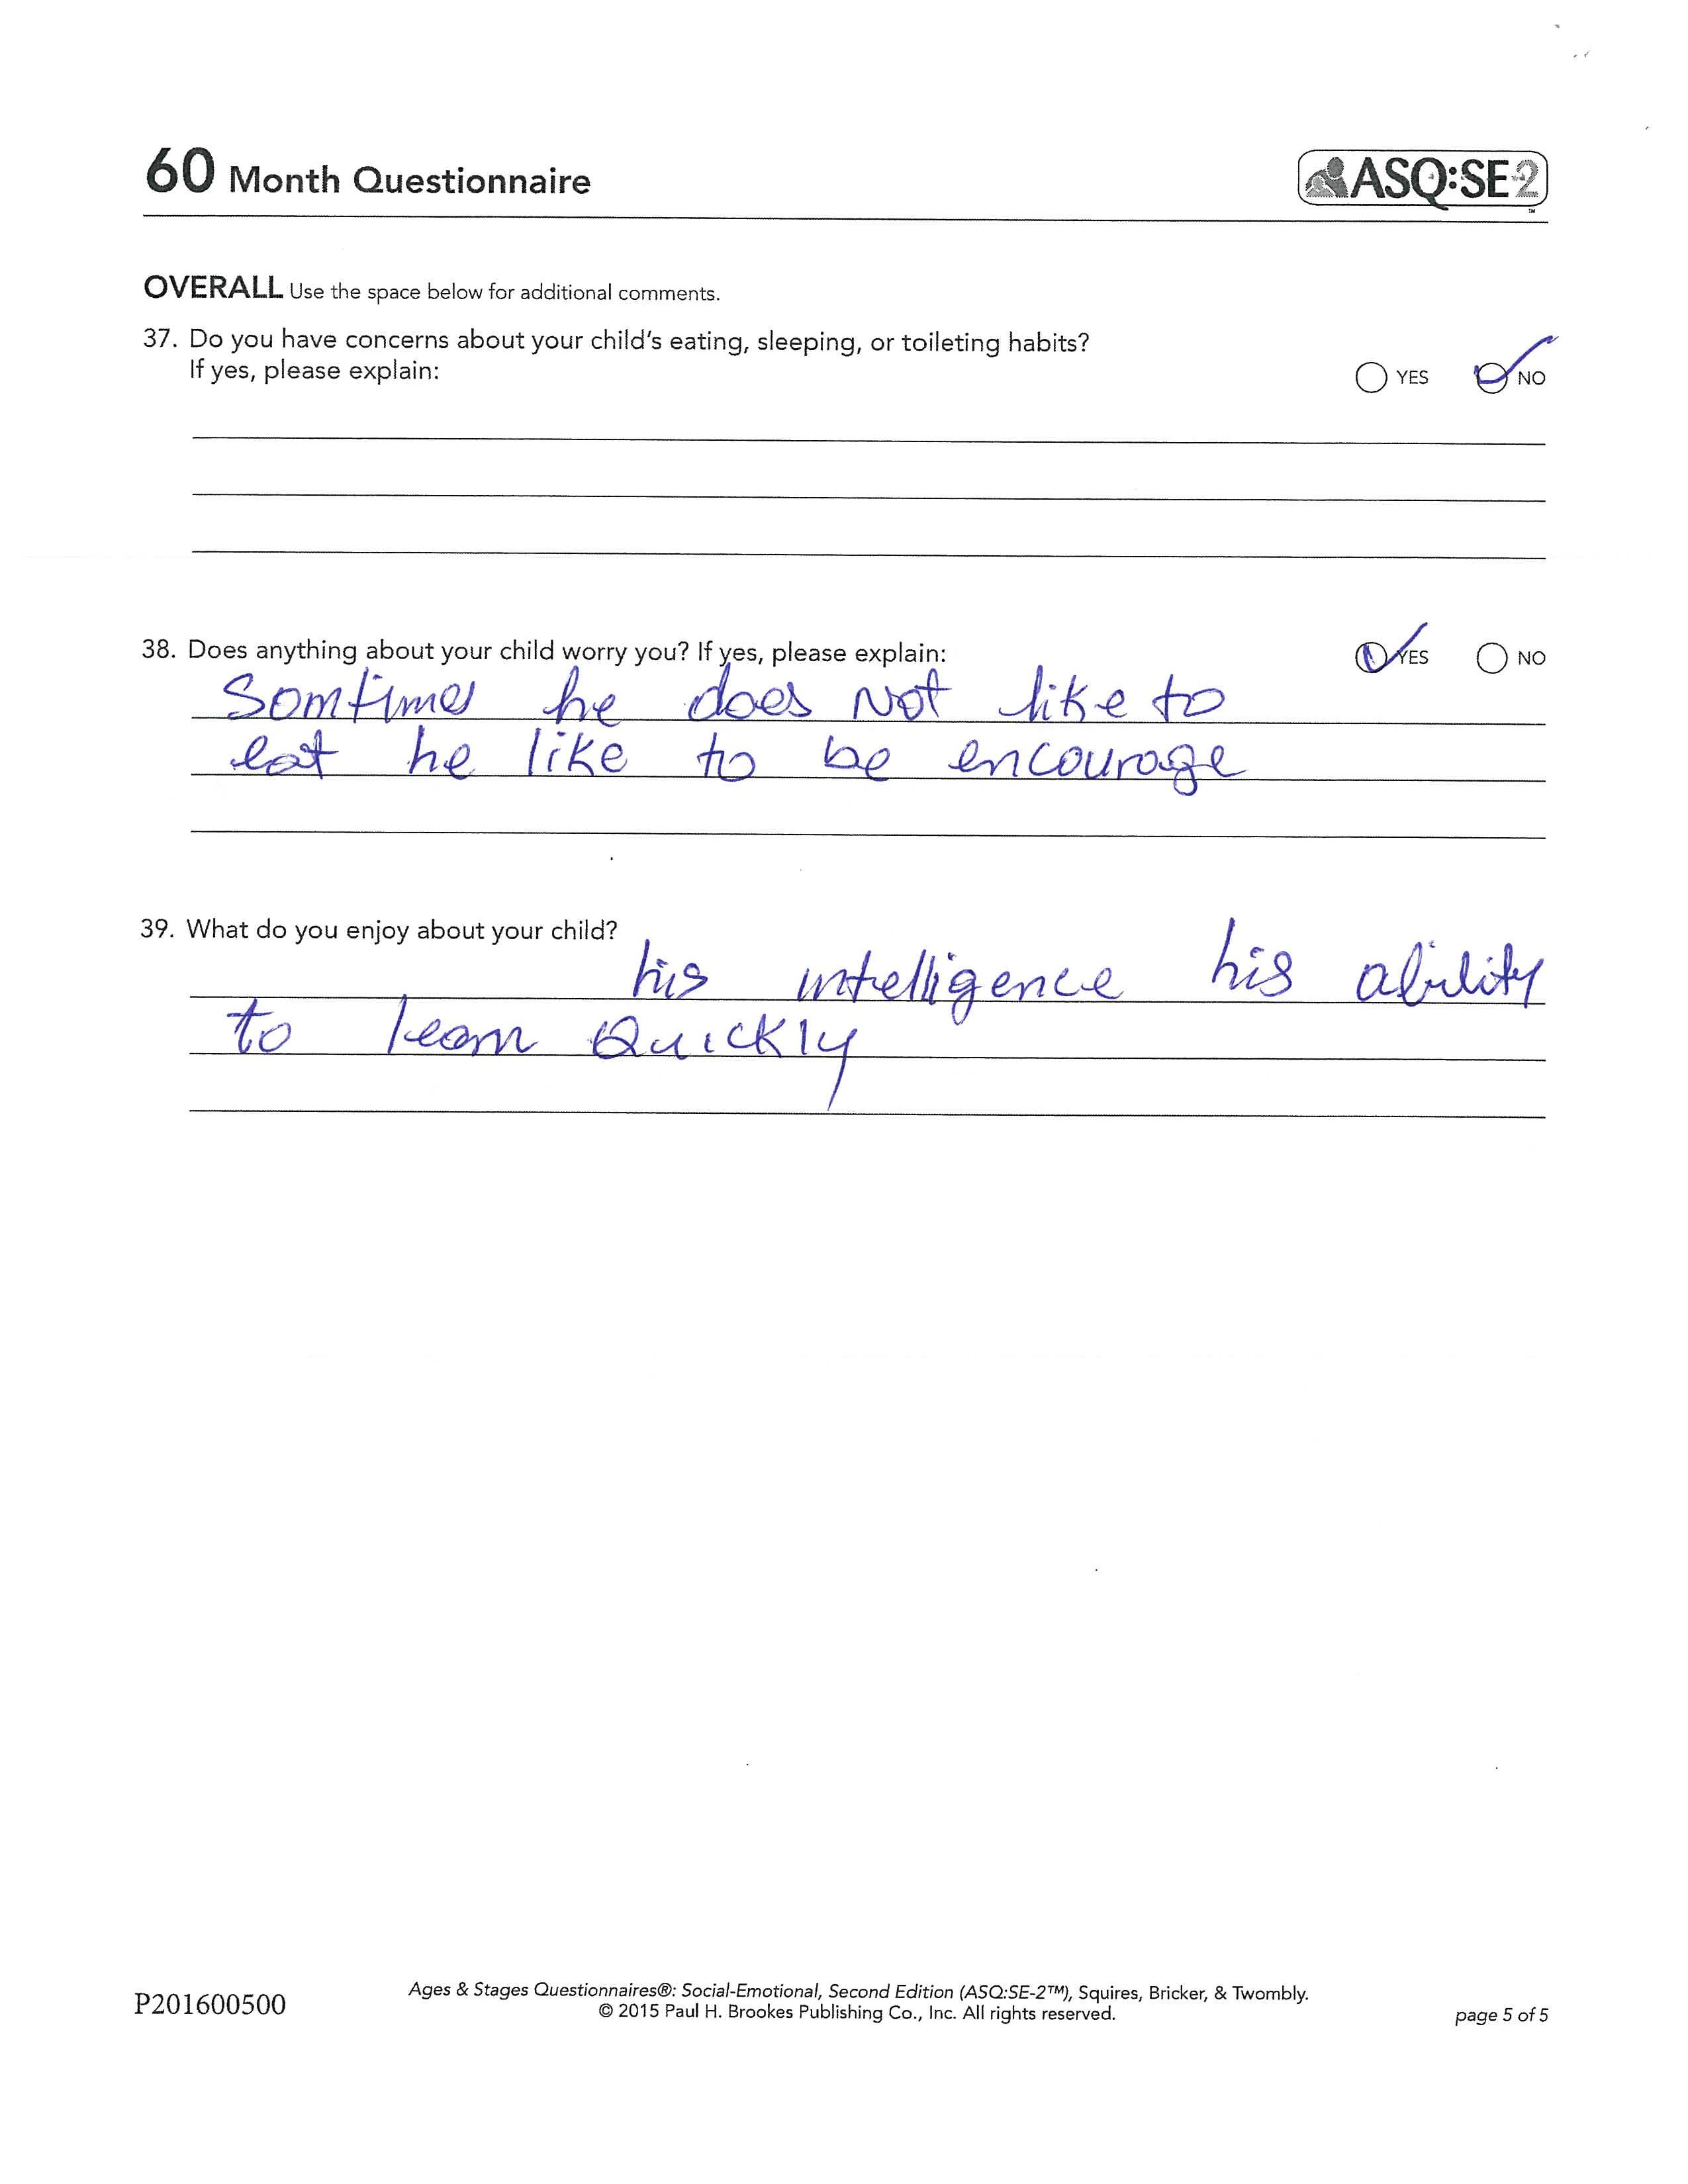 60 Month Questionnaire
ASQ:SE-2™
OVERALL Use the space below for additional comments.
37. Do you have concerns about your child's eating, sleeping, or toileting habits?
If yes, please explain:
YES NO
38. Does anything about your child worry you? If yes, please explain:
YES NO
Somtimes he does Not like to
eat he like to be encourage
39. What do you enjoy about your child?
his intelligence his ability
to learn Quickly
P201600500
Ages & Stages Questionnaires®: Social-Emotional, Second Edition (ASQ:SE-2™), Squires, Bricker, & Twombly.
© 2015 Paul H. Brookes Publishing Co., Inc. All rights reserved.
page 5 of 5